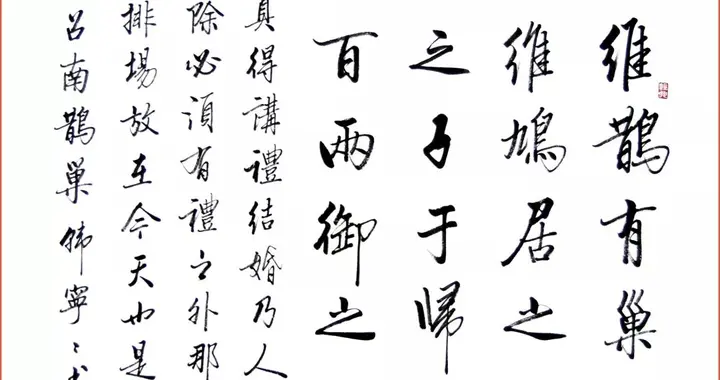 维鹊有巢
维鳩居之
之子于歸
百两御之
真得講禮结婚乃人
除必須有禮之外那
排場放在今天也是
召南鹊巢韩寧寧书